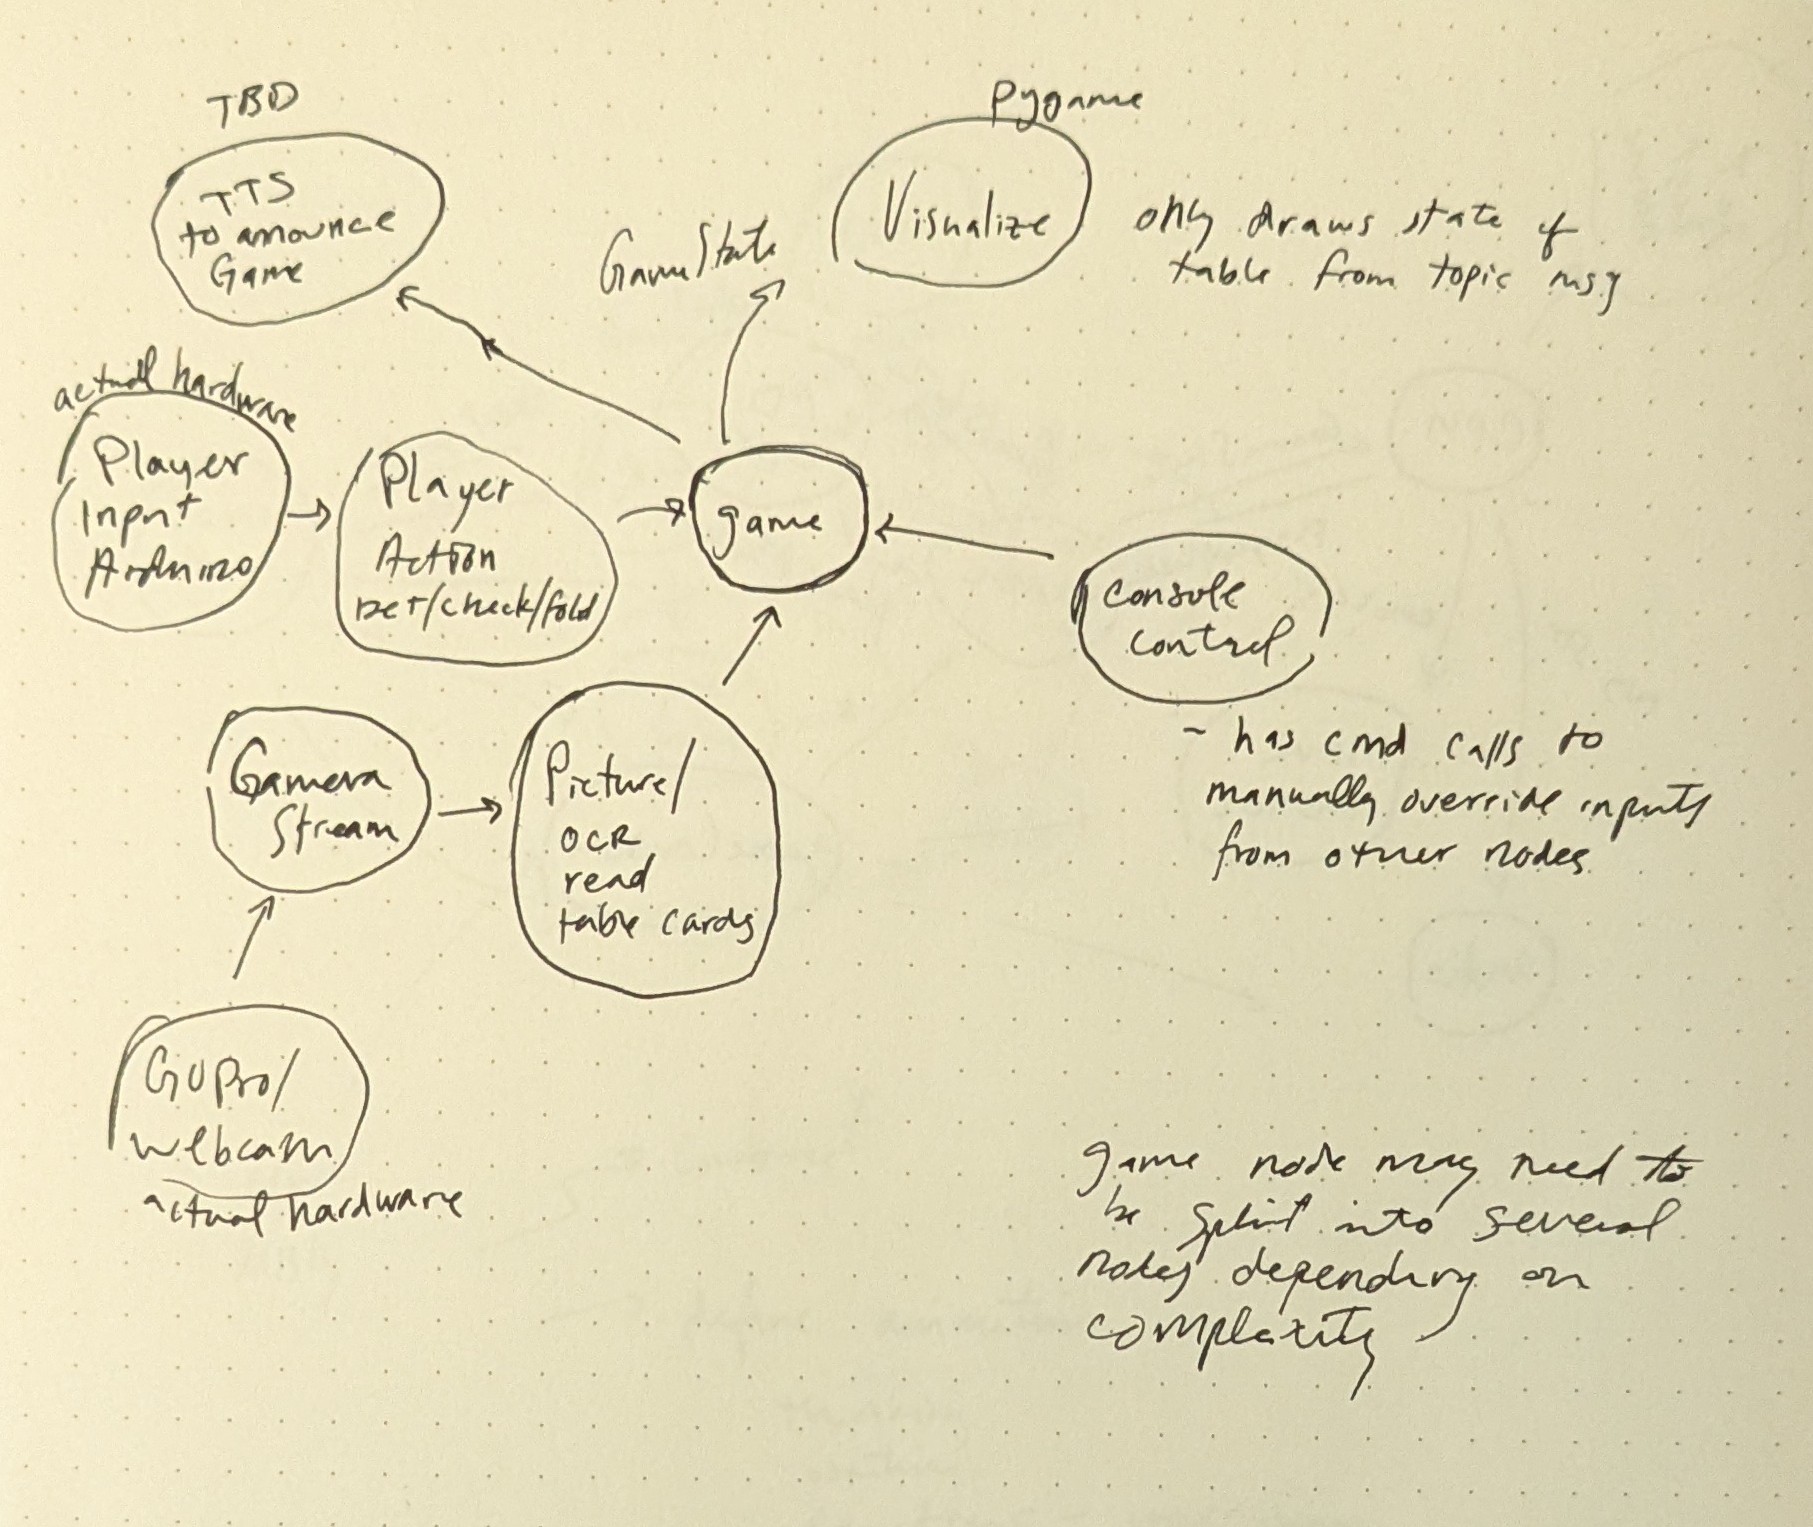 TBD
TTS
to anounce
Game
Pygame
Visualize
GameState
only draws state of
table from topic msg
actual hardware
Player
Input
Arduino
Player
Action
bet/check/fold
game
console
control
- has cmd calls to
manually override inputs
from other nodes
Camera
Stream
Picture/
OCR
read
table cards
GoPro/
webcam
actual hardware
game node may need to
be split into several
nodes depending on
complexity